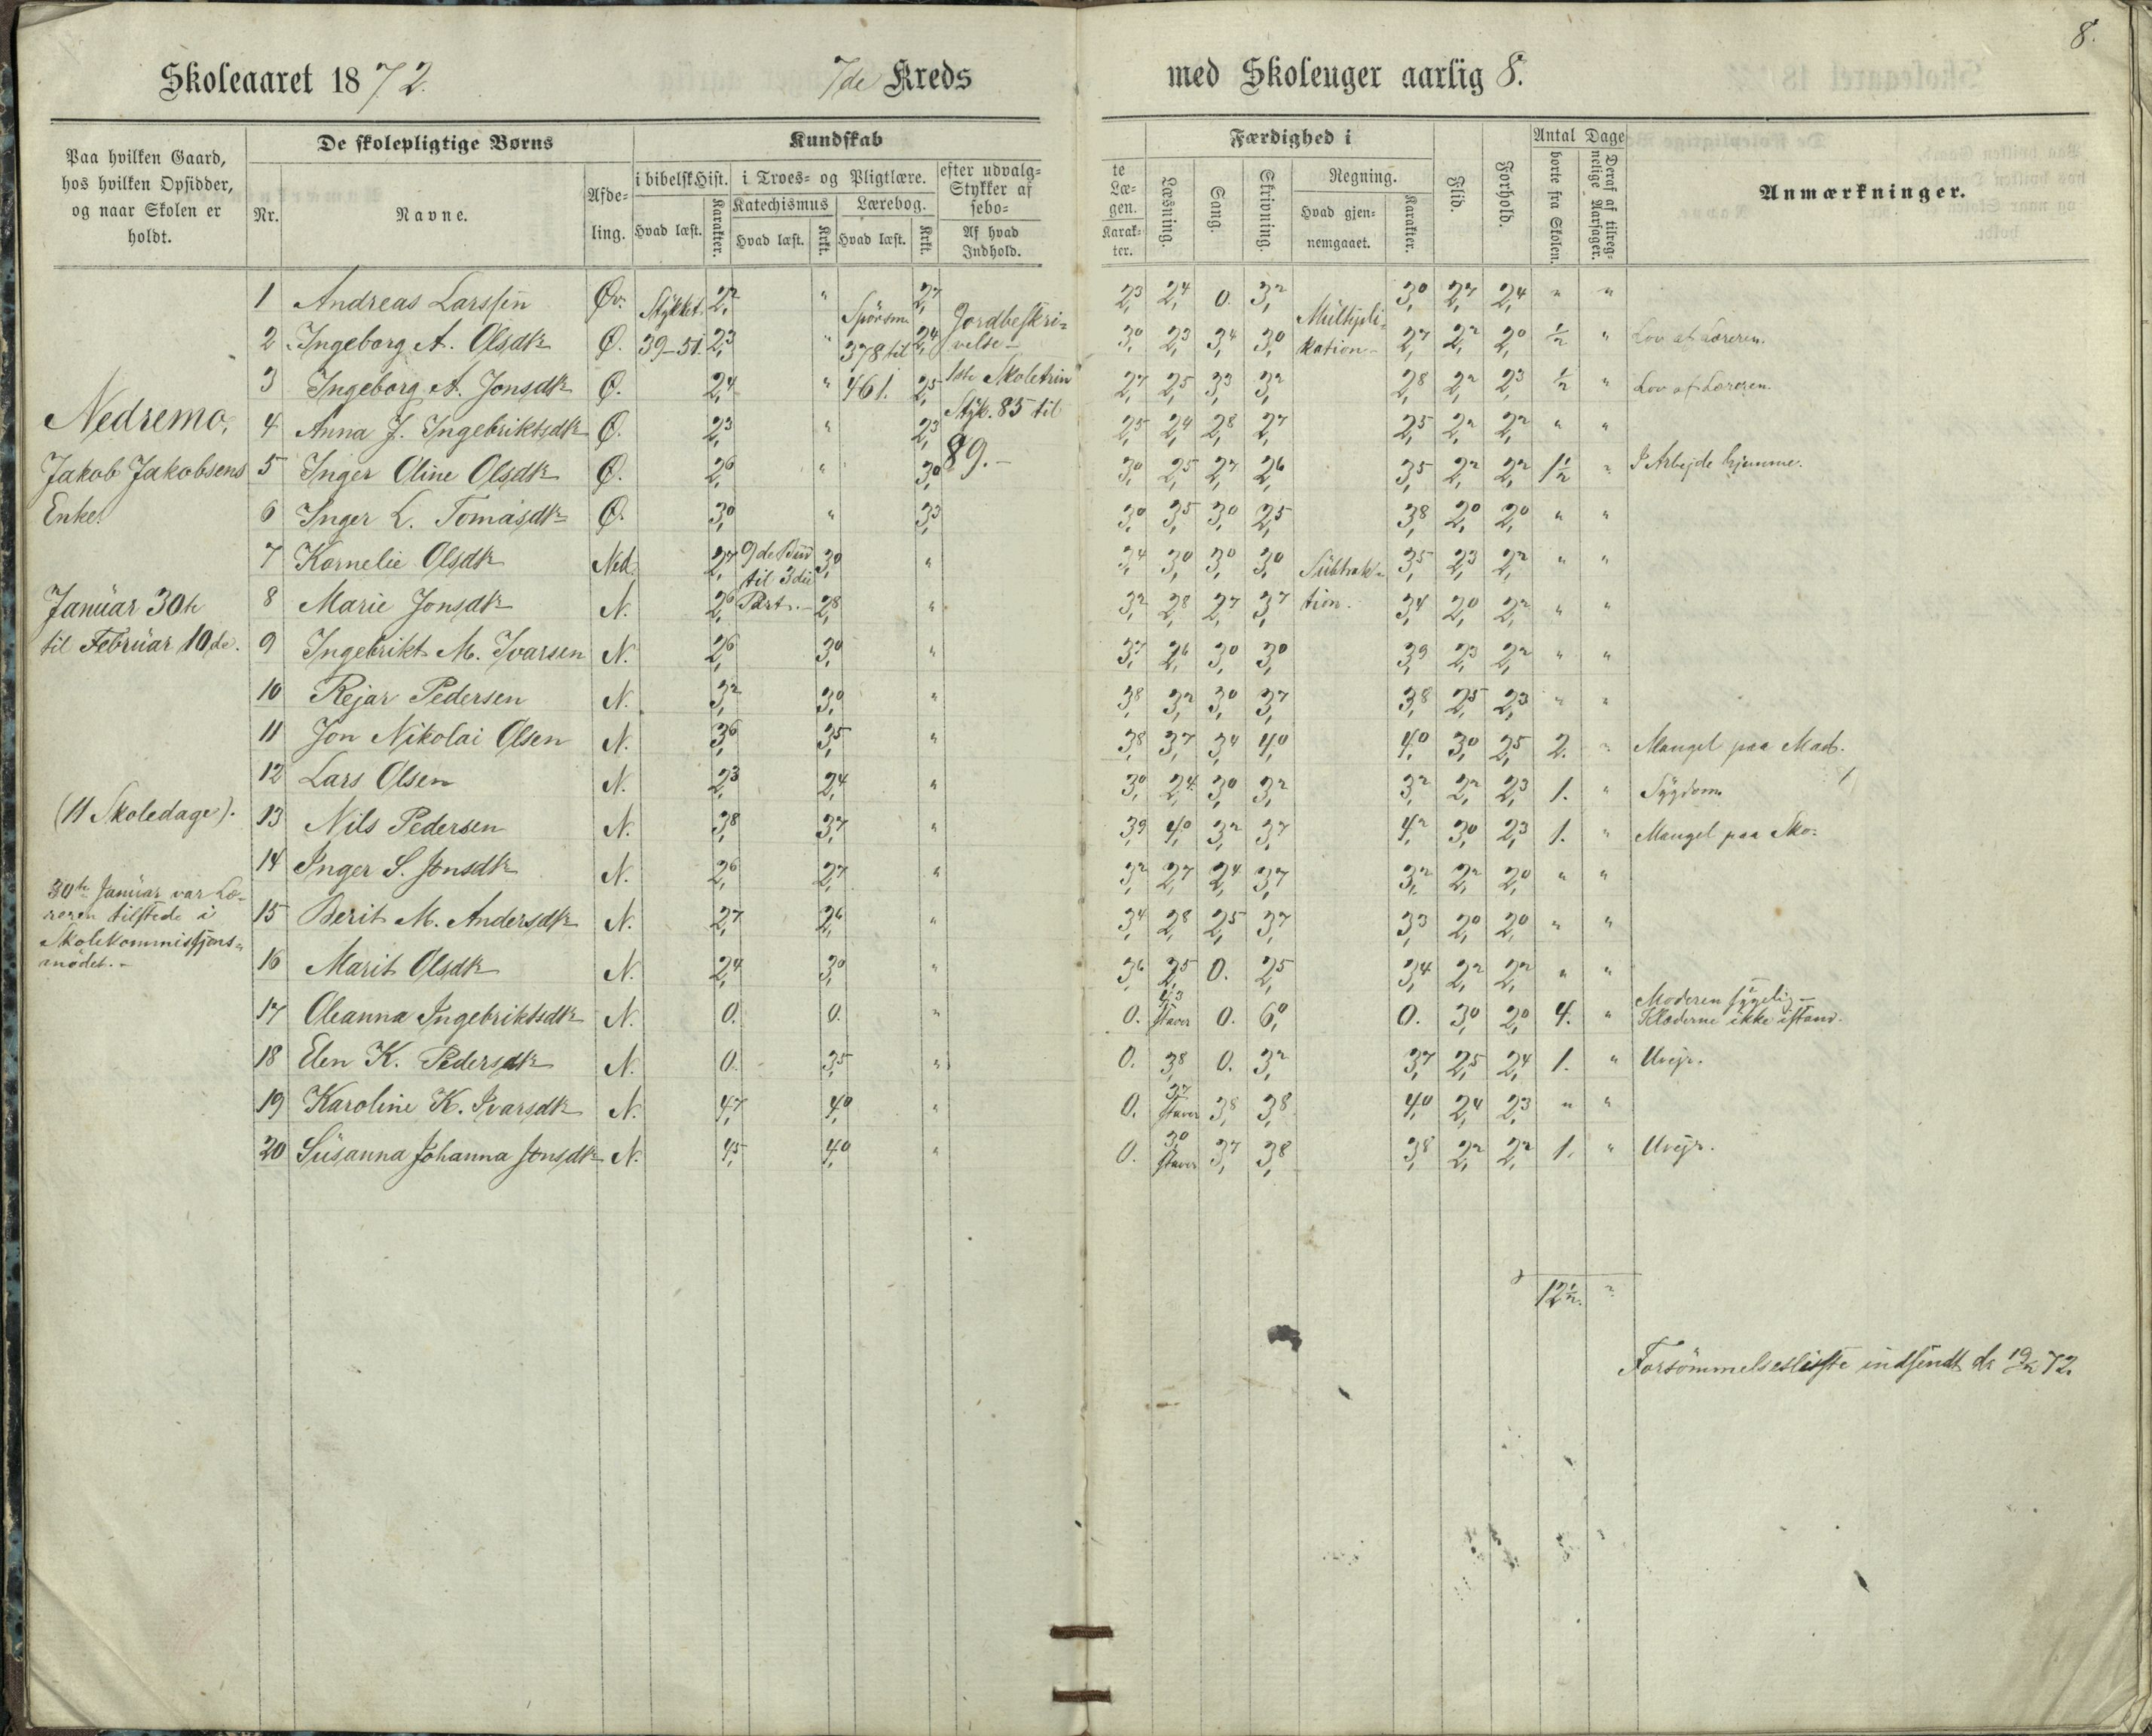 8.
Skoleaaret 1872. 7de Kreds med Skoleuger aarlig 8.
Paa hvilken Gaard, hos hvilken Opsidder, og naar Skolen er holdt.
De skolepligtige Børns
Nr. Navne. Afdeling.
Kundskab
i bibelsk Hist. Hvad læst. Karakter.
i Troes- og Pligtlære.
Katechismus Hvad læst. Krkt.
Lærebog. Hvad læst. Krkt.
efter udvalg= Stykker af sebo= Af hvad Indhold.
te Læ= gen. Karak= ter.
Færdighed i
Læsning. Sang. Skrivning.
Regning. Hvad gjen= nemgaaet. Karakter.
Flid. Forholb.
Antal Dage
borte fra Skolen. Deraf af tilreg= nelige Aarsager.
Anmærkninger.
Nedremo,
Jakob Jakobsens
Enke.
Januar 30te
til Februar 10de.
(11 Skoledage).
30te Januar var Læ-
reren tilstede i
Skolekommissjons-
mödet. -
Stykket
39-51.
9de Bud
til 3die
Part. -
Spörsm.
378 til
461.
Jordbeskri=
velse -
1ste Skoletrin
Styk. 85 til
89. -
Multipli=
kation -
Subtrak-
tion.
1 Andreas Larssen Øv. 2,2 " 2,7 2,3 2,4 0. 3,2 3,0 2,7 2,4 " "
2 Ingeborg A. Olsdtr Ø. 2,3 " 2,4 3,0 2,3 3,4 3,0 2,7 2,2 2,0 1/2 " Lov af Læreren.
3 Ingeborg A. Jonsdtr Ø. 2,4 " 2,5 2,7 2,5 3,3 3,2 2,8 2,2 2,3 1/2 " Lov af Læreren.
4 Anna J. Ingebriktsdtr Ø. 2,3 " 2,3 2,5 2,4 2,8 2,7 2,5 2,2 2,2 " "
5 Inger Oline Olsdtr Ø. 2,6 " 3,0 3,0 2,5 2,7 2,6 3,5 2,2 2,2 1 1/2 " I Arbejde hjemme.
6 Inger L. Tomasdtr Ø. 3,0 " 3,3 3,0 3,5 3,0 2,5 3,8 2,0 2,0 " "
7 Kornelie Olsdtr Ned. 2,7 3,0 " 3,4 3,0 3,0 3,0 3,5 2,3 2,2 " "
8 Marie Jonsdtr N. 2,6 2,8 " 3,2 2,8 2,7 3,7 3,4 2,0 2,2 " "
9 Ingebrikt M. Ivarsen N. 2,6 3,0 " 3,7 2,6 3,0 3,0 3,9 2,3 2,2 " "
10 Rejar Pedersen N. 3,2 3,0 " 3,8 3,2 3,0 3,7 3,8 2,5 2,3 " "
11 Jon Nikolai Olsen N. 3,6 3,5 " 3,8 3,7 3,4 4,0 4,0 3,0 2,5 2. " Mangel paa Mad.
12 Lars Olsen N. 2,3 2,4 " 3,0 2,4 3,0 3,2 3,2 2,2 2,3 1. " Sygdom
13 Nils Pedersen N. 3,8 3,7 " 3,9 4,0 3,2 3,7 4,2 3,0 2,3 1. " Mangel paa Sko.
14 Inger S. Jonsdtr N. 2,6 2,7 " 3,2 2,7 2,4 3,7 3,2 2,2 2,0 " "
15 Berit M. Andersdtr N. 2,7 2,6 " 3,4 2,8 2,5 3,7 3,3 2,0 2,0 " "
16 Marit Olsdtr N. 2,4 3,0 " 3,6 2,5 0. 2,5 3,4 2,2 2,2 " "
17 Oleanna Ingebriktsdtr N. 0. 0. " 0. 4,3 staver 0. 6,0 0. 3,0 2,0 4. " Moderen sygelig - Klæderne ikke istand.
18 Elen K. Pedersdtr N. 0. 3,5 " 0. 3,8 0. 3,2 3,7 2,5 2,4 1. " Uvejr.
19 Karoline K. Ivarsdtr N. 4,7 4,0 " 0. 3,7 staver 3,8 3,8 4,0 2,4 2,3 " "
20 Susanna Johanna Jonsdtr N. 4,5 4,0 " 0. 3,0 staver 3,7 3,8 3,8 2,2 2,2 1. " Uvejr.
12 1/2. "
Forsömmelsesliste indsendt de 19/2 72.